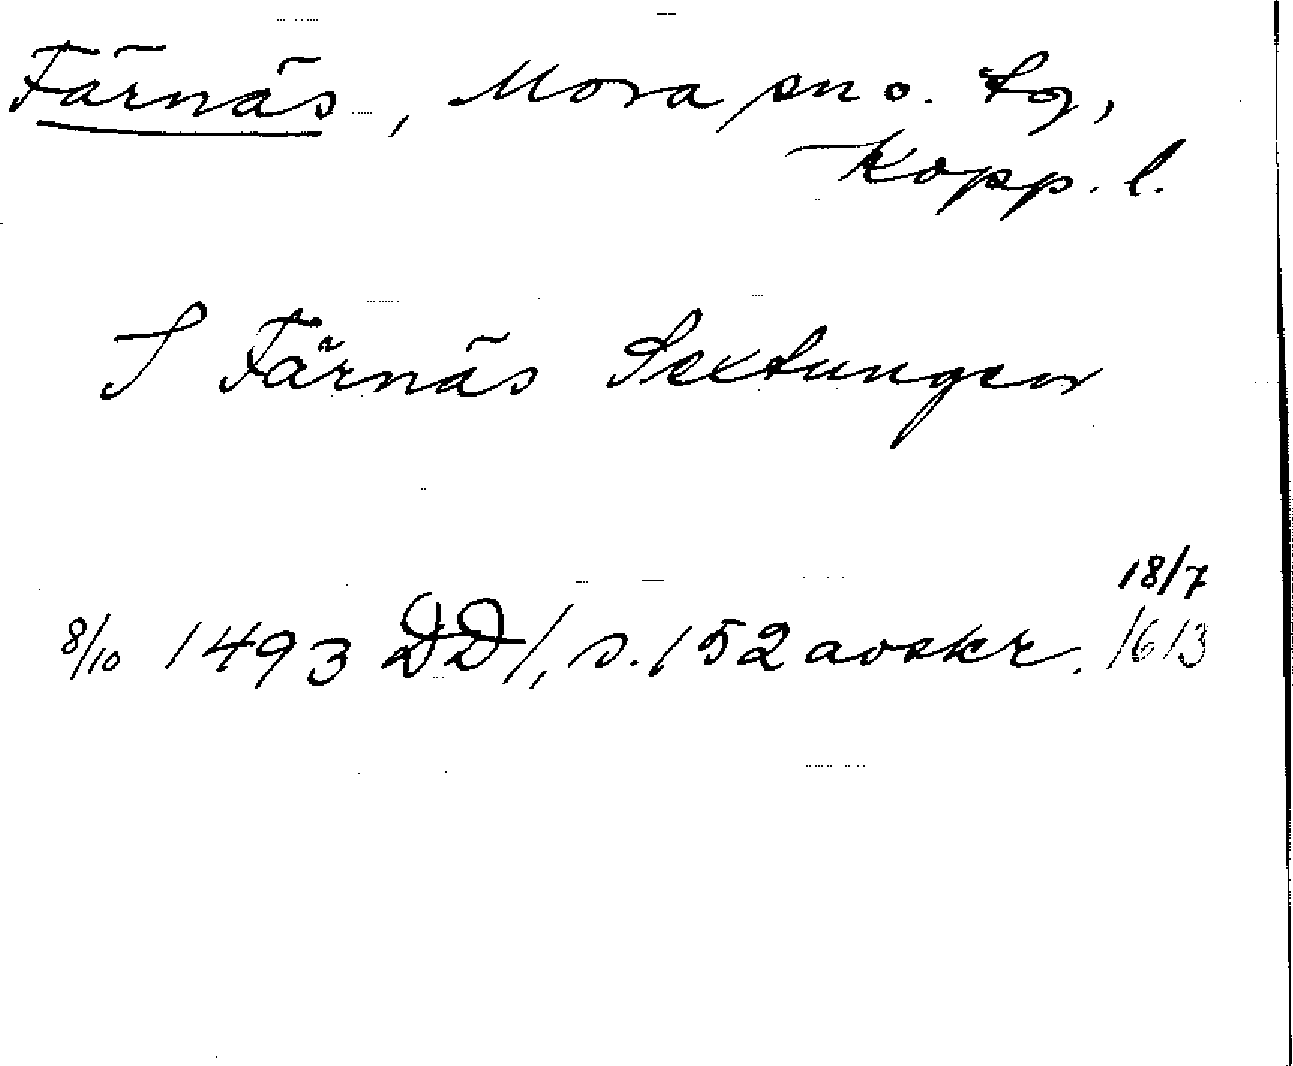 Färnäs, Mora sn o. tg,
Kopp. l.
I Färnäs Sextungen
18/7
8/10 1493 DD 1, s. 152 avskr. 1613